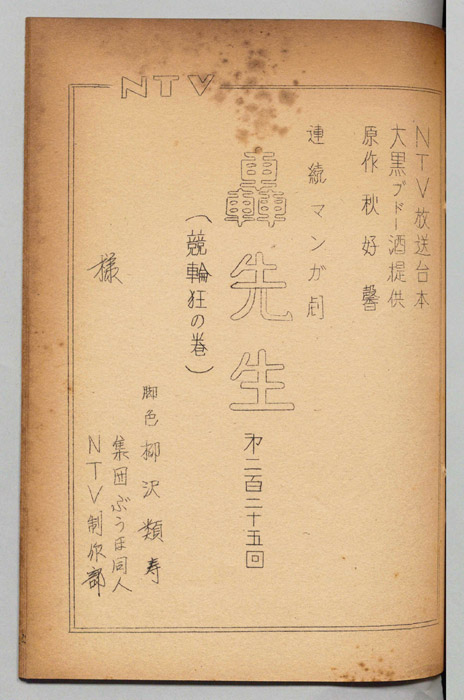 NTV
NTV放送台本
大黒ブドー酒提供
原作 秋好馨
連続マンガ劇
轟先生
第二百二十五回
(競輪狂の巻)
脚色 柳沢類寿
集団ぶうほ同人
NTV制作部
様